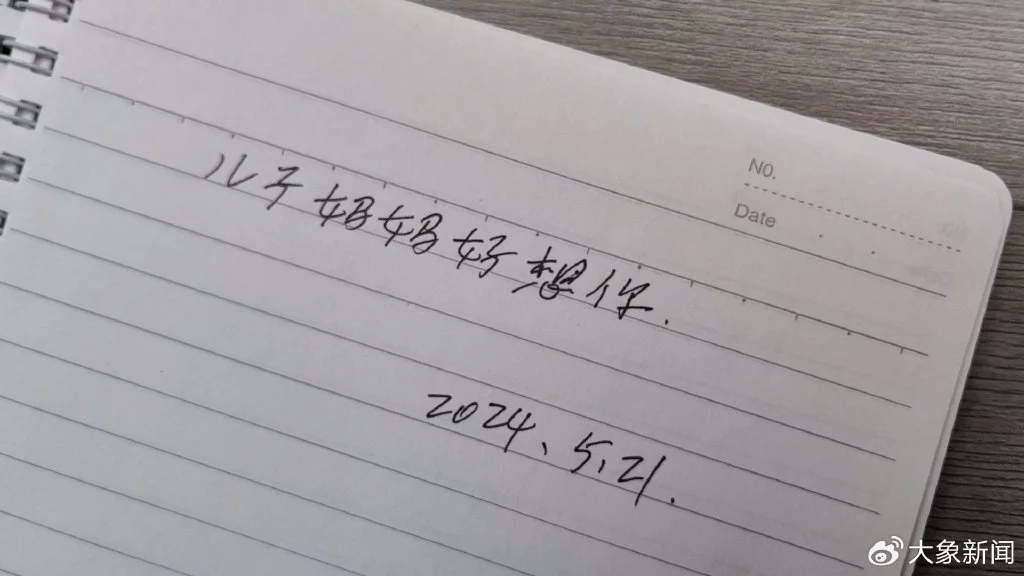 NO.
Date
儿子妈妈好想你.
2024、5、21.
大象新闻